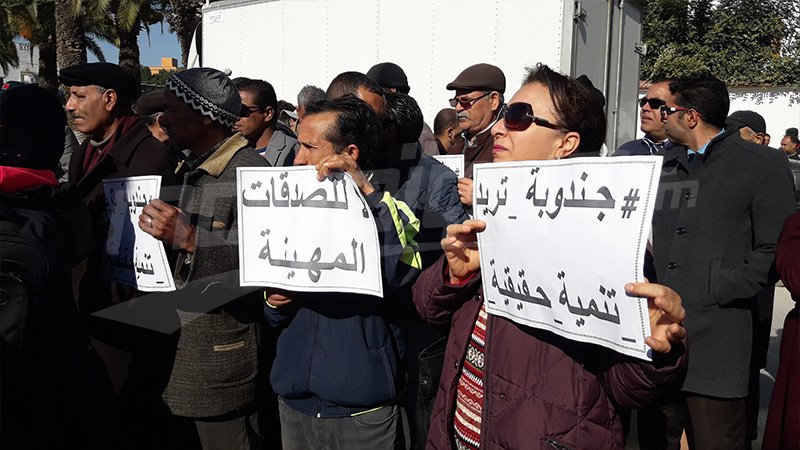 #جندوبة_تريد
_تنمية_حقيقية
لا للصدقات
المهينة
جندوبة
_تنمية